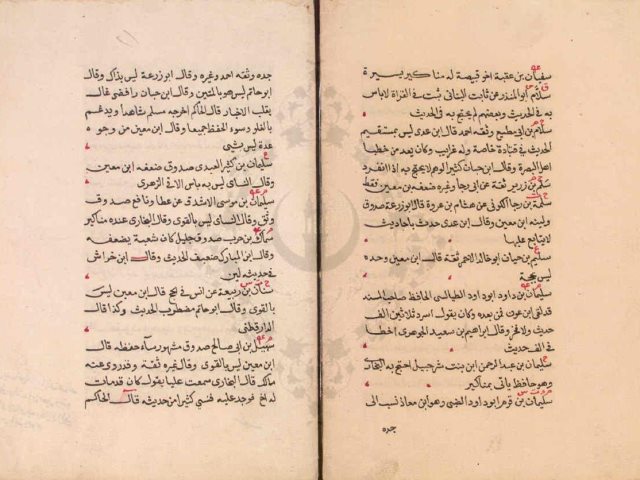 سفيان بن عقبة اخو قبيصة له مناكير يسيرة
سلام ابو المنذر عن ثابت البناني ثبت في القراة لاباس
به في الحديث وبعضهم يحتج به في الحديث
سلام بن ابي مطيع وثقه احمد قال ابن عدي ليس بمستقيم
الحديث في قتادة خاصة وله غرايب وكان يعد من خطبا
اهل البصرة وقال ابن حبان كثير الوهم لا يحتج به اذا انفرد
سلم بن زرير ثقة عن ابي رجا وغيره ضعفه بن معين فقط
سلمة بن رجا الكوفي عن هشام بن عروة قال ابو زرعة صدوق
ولينه ابن معين وقال ابن عدي حدث باحاديث
لا يتابع عليها
سليم بن حيان ابو خالد الاحمر ثقة قال ابن معين وحده
ليس بحجة
سليمان بن داود ابو داود الطيالسي الحافظ صاحب المسند
ثقة لقي ابن عون فمن بعده وكان يقول اسرد ثلاثين الف
حديث ولا فخر وقال ابراهيم بن سعيد الجوهري اخطا
في الف حديث
سليمان بن عبد الرحمن ابن بنت شرحبيل احتج به البخاري
وهو حافظ ياتي بمناكير
سليمان بن قرم ابو داود الضبي وهو ابن معاذ نسب الى
جده
جده وثقه احمد وغيره وقال ابو زرعة ليس بذاك وقال
ابو حاتم ليس هو بالمتين وقال ابن حبان رافضي غال
يقلب الاخبار قال الحاكم اخرجه مسلم شاهدا وقد غمز
بالغلو وسوء الحفظ جميعا وقال ابن معين من وجوه
عدة ليس بشي
سليمان بن كثير العبدي صدوق ضعفه ابن معين
وقال النساي ليس به باس الا في الزهري
سليمان بن موسى الاشدق عن عطا ونافع صدوق
وثق وقال النساي ليس بالقوي وقال البخاري عنده مناكير
سماك بن حرب صدوق جليل كان شعبة يضعفه
وقال ابن المبارك ضعيف الحديث وقال ابن خراش
في حديثه لين
سنان بن ربيعة عن انس في بخ قال ابن معين ليس
بالقوي وقال ابو حاتم مضطرب الحديث وكذا قال
الدارقطني
سهيل بن ابي صالح صدوق مشهور ساء حفظه قال
ابن معين ليس بالقوي وقال غيره ثقة وقد روى عنه
مالك قال البخاري سمعت عليا يقول كان قد مات
له اخ فوجد عليه فنسي كثيرا من حديثه قال الحاكم